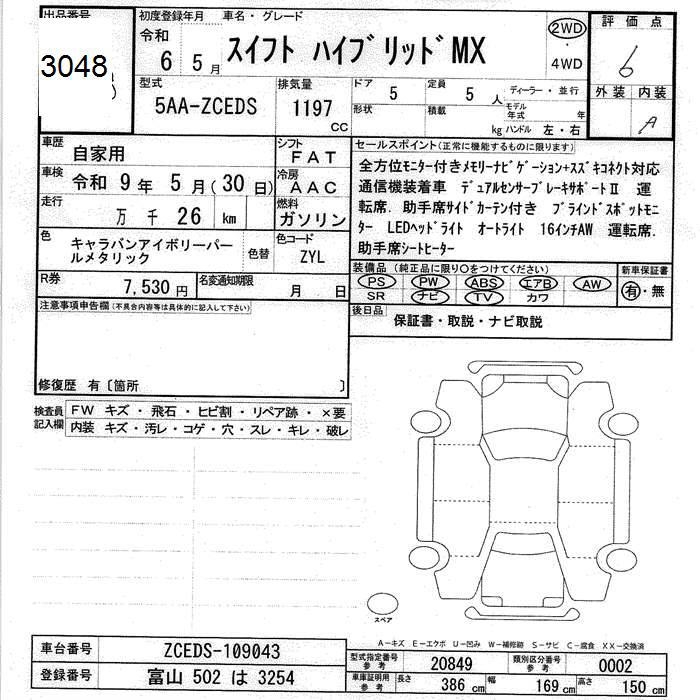 出品番号
3048
初度登録年月 車名・グレード
令和 6 5月 スイフト ハイブリッドMX
2WD
・
4WD
評価点
6
外装 内装
A
型式
5AA-ZCEDS
排気量
1197 CC
ドア 5
定員 5 人
形状
積載 kg
ディーラー・並行
モデル年式 年
ハンドル 左・右
車歴 自家用
車検 令和 9年 5月(30日)
走行 万 千 26 km
シフト
FAT
冷房
AAC
燃料
ガソリン
色 キャラバンアイボリーパールメタリック
色替
色コード
ZYL
R券 7,530 円
名変通知期限 月 日
セールスポイント(正常に機能するものに限ります)
全方位モニター付きメモリーナビゲーション+スズキコネクト対応
通信機装着車 デュアルセンサーブレーキサポートⅡ 運
転席.助手席サイドカーテン付き ブラインドスポットモニ
ター LEDヘッドライト オートライト 16インチAW 運転席.
助手席シートヒーター
装備品(純正品に限り○をつけてください)
PS PW ABS エアB AW
SR ナビ TV カワ
新車保証書
有・無
後日品
保証書・取説・ナビ取説
注意事項申告欄(不具合内容等は具体的に記入して下さい)
修復歴 有〔箇所 〕
検査員記入欄
FW キズ・飛石・ヒビ割・リペア跡・×要
内装 キズ・汚レ・コゲ・穴・スレ・キレ・破レ
スペア
A−キズ E−エクボ U−凹み W−補修跡 S−サビ C−腐食 XX−交換済
車台番号 ZCEDS-109043
登録番号 富山 502 は 3254
型式指定番号参考 20849
類別区分番号参考 0002
車庫証明用参考
長さ 386 cm
幅 169 cm
高さ 150 cm